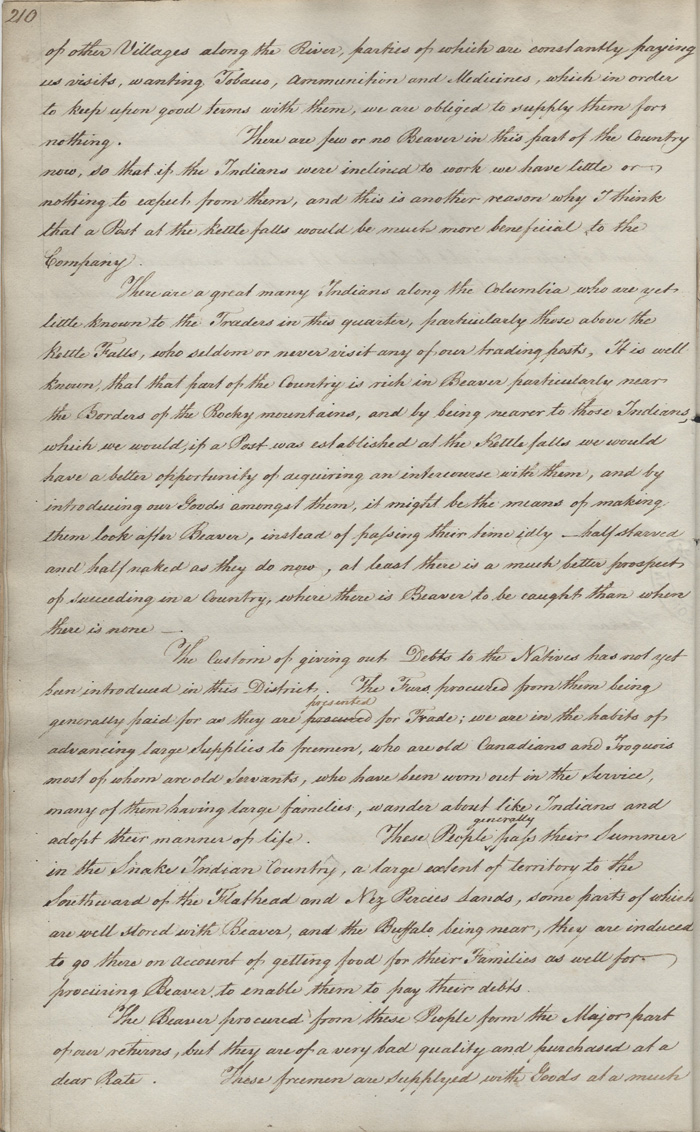 210
of other Villages along the River, parties of which are constantly paying
us visits, wanting Tobacco, Ammunition and Medicines, which in order
to keep upon good terms with them, we are obliged to supply them for
nothing. There are few or no Beaver in this part of the Country
now, so that if the Indians were inclined to work we have little or
nothing to expect from them, and this is another reason why I think
that a Post at the Kettle falls would be much more beneficial to the
Company.
There are a great many Indians along the Columbia who are yet
little known to the Traders in this quarter, particularly those above the
Kettle Falls, who seldom or never visit any of our trading posts, It is well
known, that that part of the Country is rich in Beaver particularly near
the Borders of the Rocky mountains, and by being nearer to those Indians,
which we would, if a Post was established at the Kettle falls we would
have a better opportunity of acquiring an intercourse with them, and by
introducing our Goods amongst them, it might be the means of making
them look after Beaver, instead of passing their time idly – half starved
and half naked as they do now, at least there is a much better prospect
of succeeding in a Country, where there is Beaver to be caught than when
there is none —.
The Custom of giving out Debts to the Natives has not yet
been introduced in this District. The Furs procured from them being
presented
generally paid for as they are procured for Trade; we are in the habits of
advancing large Supplies to freemen, who are old Canadians and Iroquois
most of whom are old Servants, who have been worn out in the Service,
many of them having large families, wander about like Indians and
generally
adopt their manner of life. These People pass their Summer
in the Snake Indian Country, a large extent of territory to the
Southward of the Flathead and Nez Percies Lands, some parts of which
are well stored with Beaver, and the Buffalo being near, they are induced
to go there on account of getting food for their Families as well for
procuring Beaver to enable them to pay their debts.
The Beaver procured from these People form the Major part
of our returns, but they are of a very bad quality and purchased at a
dear Rate. These freemen are supplyed with Goods at a much